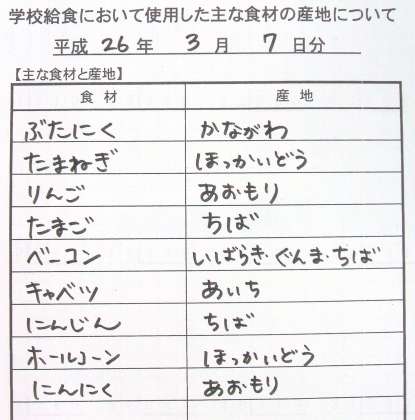 学校給食において使用した主な食材の産地について
平成 26 年 3 月 7 日分
【主な食材と産地】
食材 産地
ぶたにく かながわ
たまねぎ ほっかいどう
りんご あおもり
たまご ちば
ベーコン いばらき・ぐんま・ちば
キャベツ あいち
にんじん ちば
ホールコーン ほっかいどう
にんにく あおもり